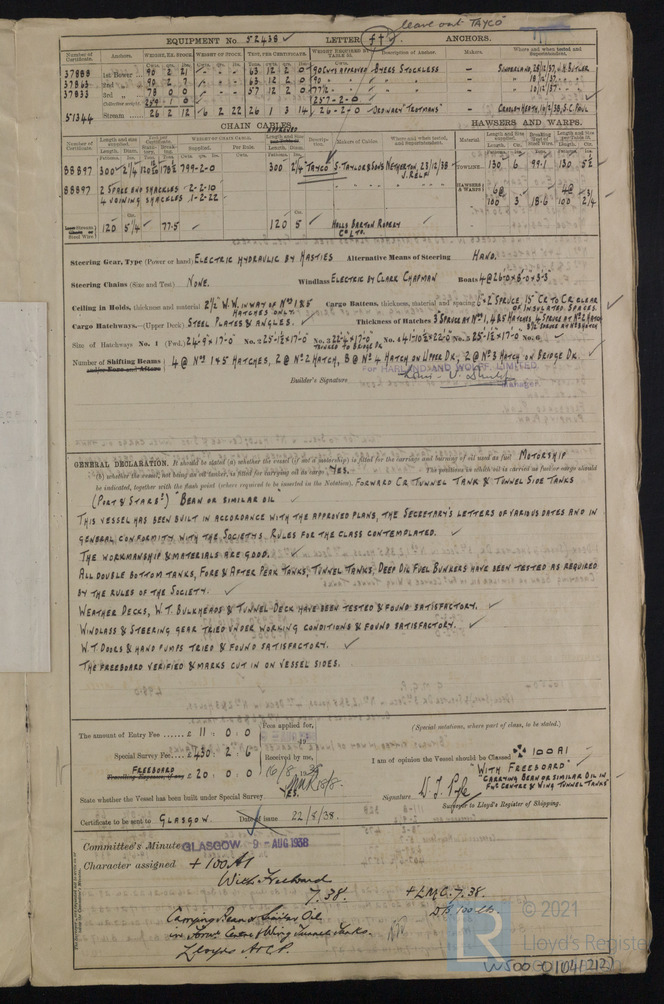 leave out TAYCO
EQUIPMENT No. 52438 LETTER ft ANCHORS.
Number of Certificate. Anchors. WEIGHT, EX. STOCK. WEIGHT OF STOCK. TEST, PER CERTIFICATE. WEIGHT REQUIRED BY TABLE 31. Description of Anchor. Makers. Where and when tested and Superintendent.
37888 1st Bower 90 2 21 63 12 2 0 90 Cwts APPROVED BYERS STOCKLESS SUNDERLAND, 28/12/37, J.H. BUTLER
37863 2nd 90 2 7 63 12 2 0 90 18/12/37
37833 3rd 78 0 0 57 12 2 0 77½ 10/12/37
Collective weight 259 1 0 257-2-0
51344 Stream 26 2 12 6 2 22 26 1 3 14 26-2-0 ORDINARY "TROTMANS" CRADLEY HEATH, S.C. PAUL
CHAIN CABLES. HAWSERS AND WARPS.
88897 300 2¼ 799-2-0 300 2¼ TAYCO S. TAYLOR & SONS NETHERTON, 23/12/38 TOWLINE 130 6 99·1 130 5½
88897 2 SPARE END SHACKLES 2-2-10
4 JOINING SHACKLES 1-2-22 100 3 18·6 100 2¾
120 5¼ 77·5 120 5 HOLLS BARTON ROPERY Co LTD.
Steering Gear, Type (Power or hand) ELECTRIC HYDRAULIC BY HASTIES Alternative Means of Steering HAND.
Steering Chains (Size and Test) NONE. Windlass ELECTRIC BY CLARK CHAPMAN Boats 4 @ 26·0×8·0×3·3
Ceiling in Holds, thickness and material 2½" W.W. IN WAY OF Nos 1 & 5 HATCHES ONLY. Cargo Battens, thickness, material and spacing 6×2 SPRUCE, 15" CR TO CR CLEAR OF INSULATED SPACES.
Cargo Hatchways.—(Upper Deck) STEEL PLATES & ANGLES. Thickness of Hatches 3 SPRUCE AT No 1, 4 & 5 HATCHES, 4 SPRUCE AT No 2 HATCH
3½ SPRUCE AT No 3 HATCH
Size of Hatchways No. 1 (Fwd.) 24·9×17·0 No. 2 25·1½×17·0 No. 3 22·4×17·0 No. 4 41·10½×22·0 No. 5 25·1½×17·0 No. 6
Number of Shifting Beams 4 @ Nos 1 & 5 HATCHES, 2 @ No 2 HATCH, 8 @ No 4 HATCH ON UPPER DK, 2 @ No 3 HATCH ON BRIDGE DK.
FOR HARLAND AND WOLFF, LIMITED
Builder's Signature Manager.
GENERAL DECLARATION. It should be stated (a) whether the vessel (if not a motorship) is fitted for the carriage and burning of oil used as fuel MOTORSHIP
(b) whether the vessel, not being an oil tanker, is fitted for carrying oil as cargo YES. The positions in which oil is carried as fuel or cargo should
be indicated, together with the flash point (where required to be inserted in the Notation). FORWARD CR TUNNEL TANK & TUNNEL SIDE TANKS
(PORT & STARBd) "BEAN OR SIMILAR OIL
THIS VESSEL HAS BEEN BUILT IN ACCORDANCE WITH THE APPROVED PLANS, THE SECRETARY'S LETTERS OF VARIOUS DATES AND IN
GENERAL CONFORMITY WITH THE SOCIETYS RULES FOR THE CLASS CONTEMPLATED.
THE WORKMANSHIP & MATERIALS ARE GOOD.
ALL DOUBLE BOTTOM TANKS, FORE & AFTER PEAK TANKS, TUNNEL TANKS, DEEP OIL FUEL BUNKERS HAVE BEEN TESTED AS REQUIRED
BY THE RULES OF THE SOCIETY.
WEATHER DECKS, W.T. BULKHEADS & TUNNEL DECK HAVE BEEN TESTED & FOUND SATISFACTORY.
WINDLASS & STEERING GEAR TRIED UNDER WORKING CONDITIONS & FOUND SATISFACTORY.
W.T DOORS & HAND PUMPS TRIED & FOUND SATISFACTORY.
THE FREEBOARD VERIFIED & MARKS CUT IN ON VESSEL SIDES.
The amount of Entry Fee £ 11 : 0 : 0 Fees applied for,
Special Survey Fee £ 430 : 2 : 6 Received by me,
FREEBOARD
Travelling Expenses, if any £ 20 : 0 : 0 16/8/1938
(Special notations, where part of class, to be stated.)
I am of opinion the Vessel should be Classed ✠ 100 A1
"WITH FREEBOARD"
"CARRYING BEAN OR SIMILAR OIL IN
FWd CENTRE & WING TUNNEL TANKS"
State whether the Vessel has been built under Special Survey YES.
Signature
Surveyor to Lloyd's Register of Shipping.
Certificate to be sent to GLASGOW Date of issue 22/8/38.
Committee's Minute GLASGOW 9 - AUG 1938
Character assigned + 100 A1
With Freeboard
7.38. + L.M.C. 7.38.
D.B. 100 lb.
Carrying Bean or Similar Oil
in Forwd Centre & Wing Tunnel Tanks.
Lloyds A & C.P.
© 2021
LR
Lloyd's Register
W500-0104(2/2)